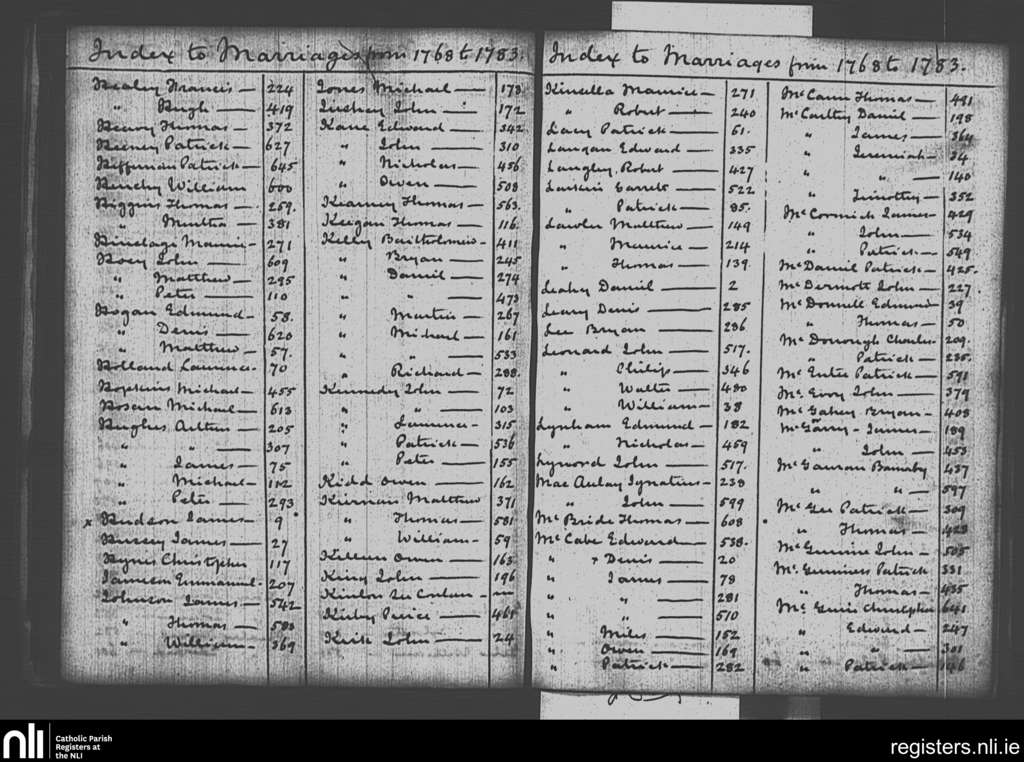 Index to Marriages from 1768 to 1783.
Healey Francis — 224
" Hugh — 419
Henry Thomas — 372
Heeney Patrick — 627
Heffernan Patrick — 645
William 600
Higgins Thomas — 259.
" Martha — 381
271
Hoey John — 609
" Matthew — 295
" Peter — 110
Hogan Edmund — 58.
" Denis — 620
" Matthew — 57.
Holland Laurence — 70
Hopkins Michael — 455
Michael — 613
Hughes Arthur — 205
" " — 307
" James — 75
" Michael — 112
" Peter — 293
x Hudson James — 9
Hussey James — 27
Hynes Christopher 117
Jameson Emmanuel - 207
Johnson James — 542
" Thomas — 580
" William — 369
Jones Michael — 173
John — 172
Kane Edward — 342
" John — 310
" Nicholas — 456
" Owen — 508
Kearney Thomas — 563.
Keegan Thomas — 116.
Kelly Bartholomew - 411
" Bryan — 245
" Daniel — 274
" " — 473
" Martin — 267
" Michael — 161
" " — 533
" Richard — 288.
Kennedy John — 72
" " — 103
" Laurence - 315
" Patrick — 536
" Peter — 155
Kidd Owen — 162
Kiernan Matthew 371
" Thomas — 581
" William — 59
Killeen Owen — 163
King John — 196
Kinlon
Kirby Pierce — 461
Kirk John — 24
Index to Marriages from 1768 to 1783.
Kinsella Maurice — 271
" Robert — 240
Lacy Patrick — 61.
Langan Edward — 335
Langley Robert — 427
Larkin Garrett — 522
" Patrick — 85.
Lawler Matthew — 149
" Maurice — 214
" Thomas — 139.
Leahy Daniel — 2
Leary Denis — 285
Lee Bryan — 236
Leonard John — 517.
" Philip — 346
" Walter — 480
" William — 38
Lynham Edmund — 182
" Nicholas — 459
John — 517.
Mac Aulay Ignatius - 238
" John — 599
Mc Bride Thomas — 608
Mc Cabe Edward — 538.
" x Denis — 20
" James — 78
" " — 281
" " — 510
" Miles — 152
" Owen — 169
" Patrick — 282
Mc Cann Thomas — 491
Mc Carthy Daniel — 198
" James — 364
" Jeremiah — 34
" " — 140
" Timothy — 352
Mc Cormick James — 429
" John — 534
" Patrick — 549
Mc Daniel Patrick — 425.
Mc Dermott John — 227
Mc Donnell Edmund 39
" Thomas — 50
Mc Donough Charles 209.
" Patrick — 235.
Mc Entee Patrick — 591
Mc Evoy John — 379
Mc Gahey Bryan — 408
Mc Garry - James — 189
" John — 453
Mc Gauran Barnaby 437
" " — 597
Mc Gee Patrick — 309
" Thomas — 423
John — 505
Mc Guinness Patrick 331
" Thomas — 435
Mc Christopher 641
" Edward — 247
" " — 301
" Patrick — 146
nli
Catholic Parish
Registers at
the NLI
registers.nli.ie